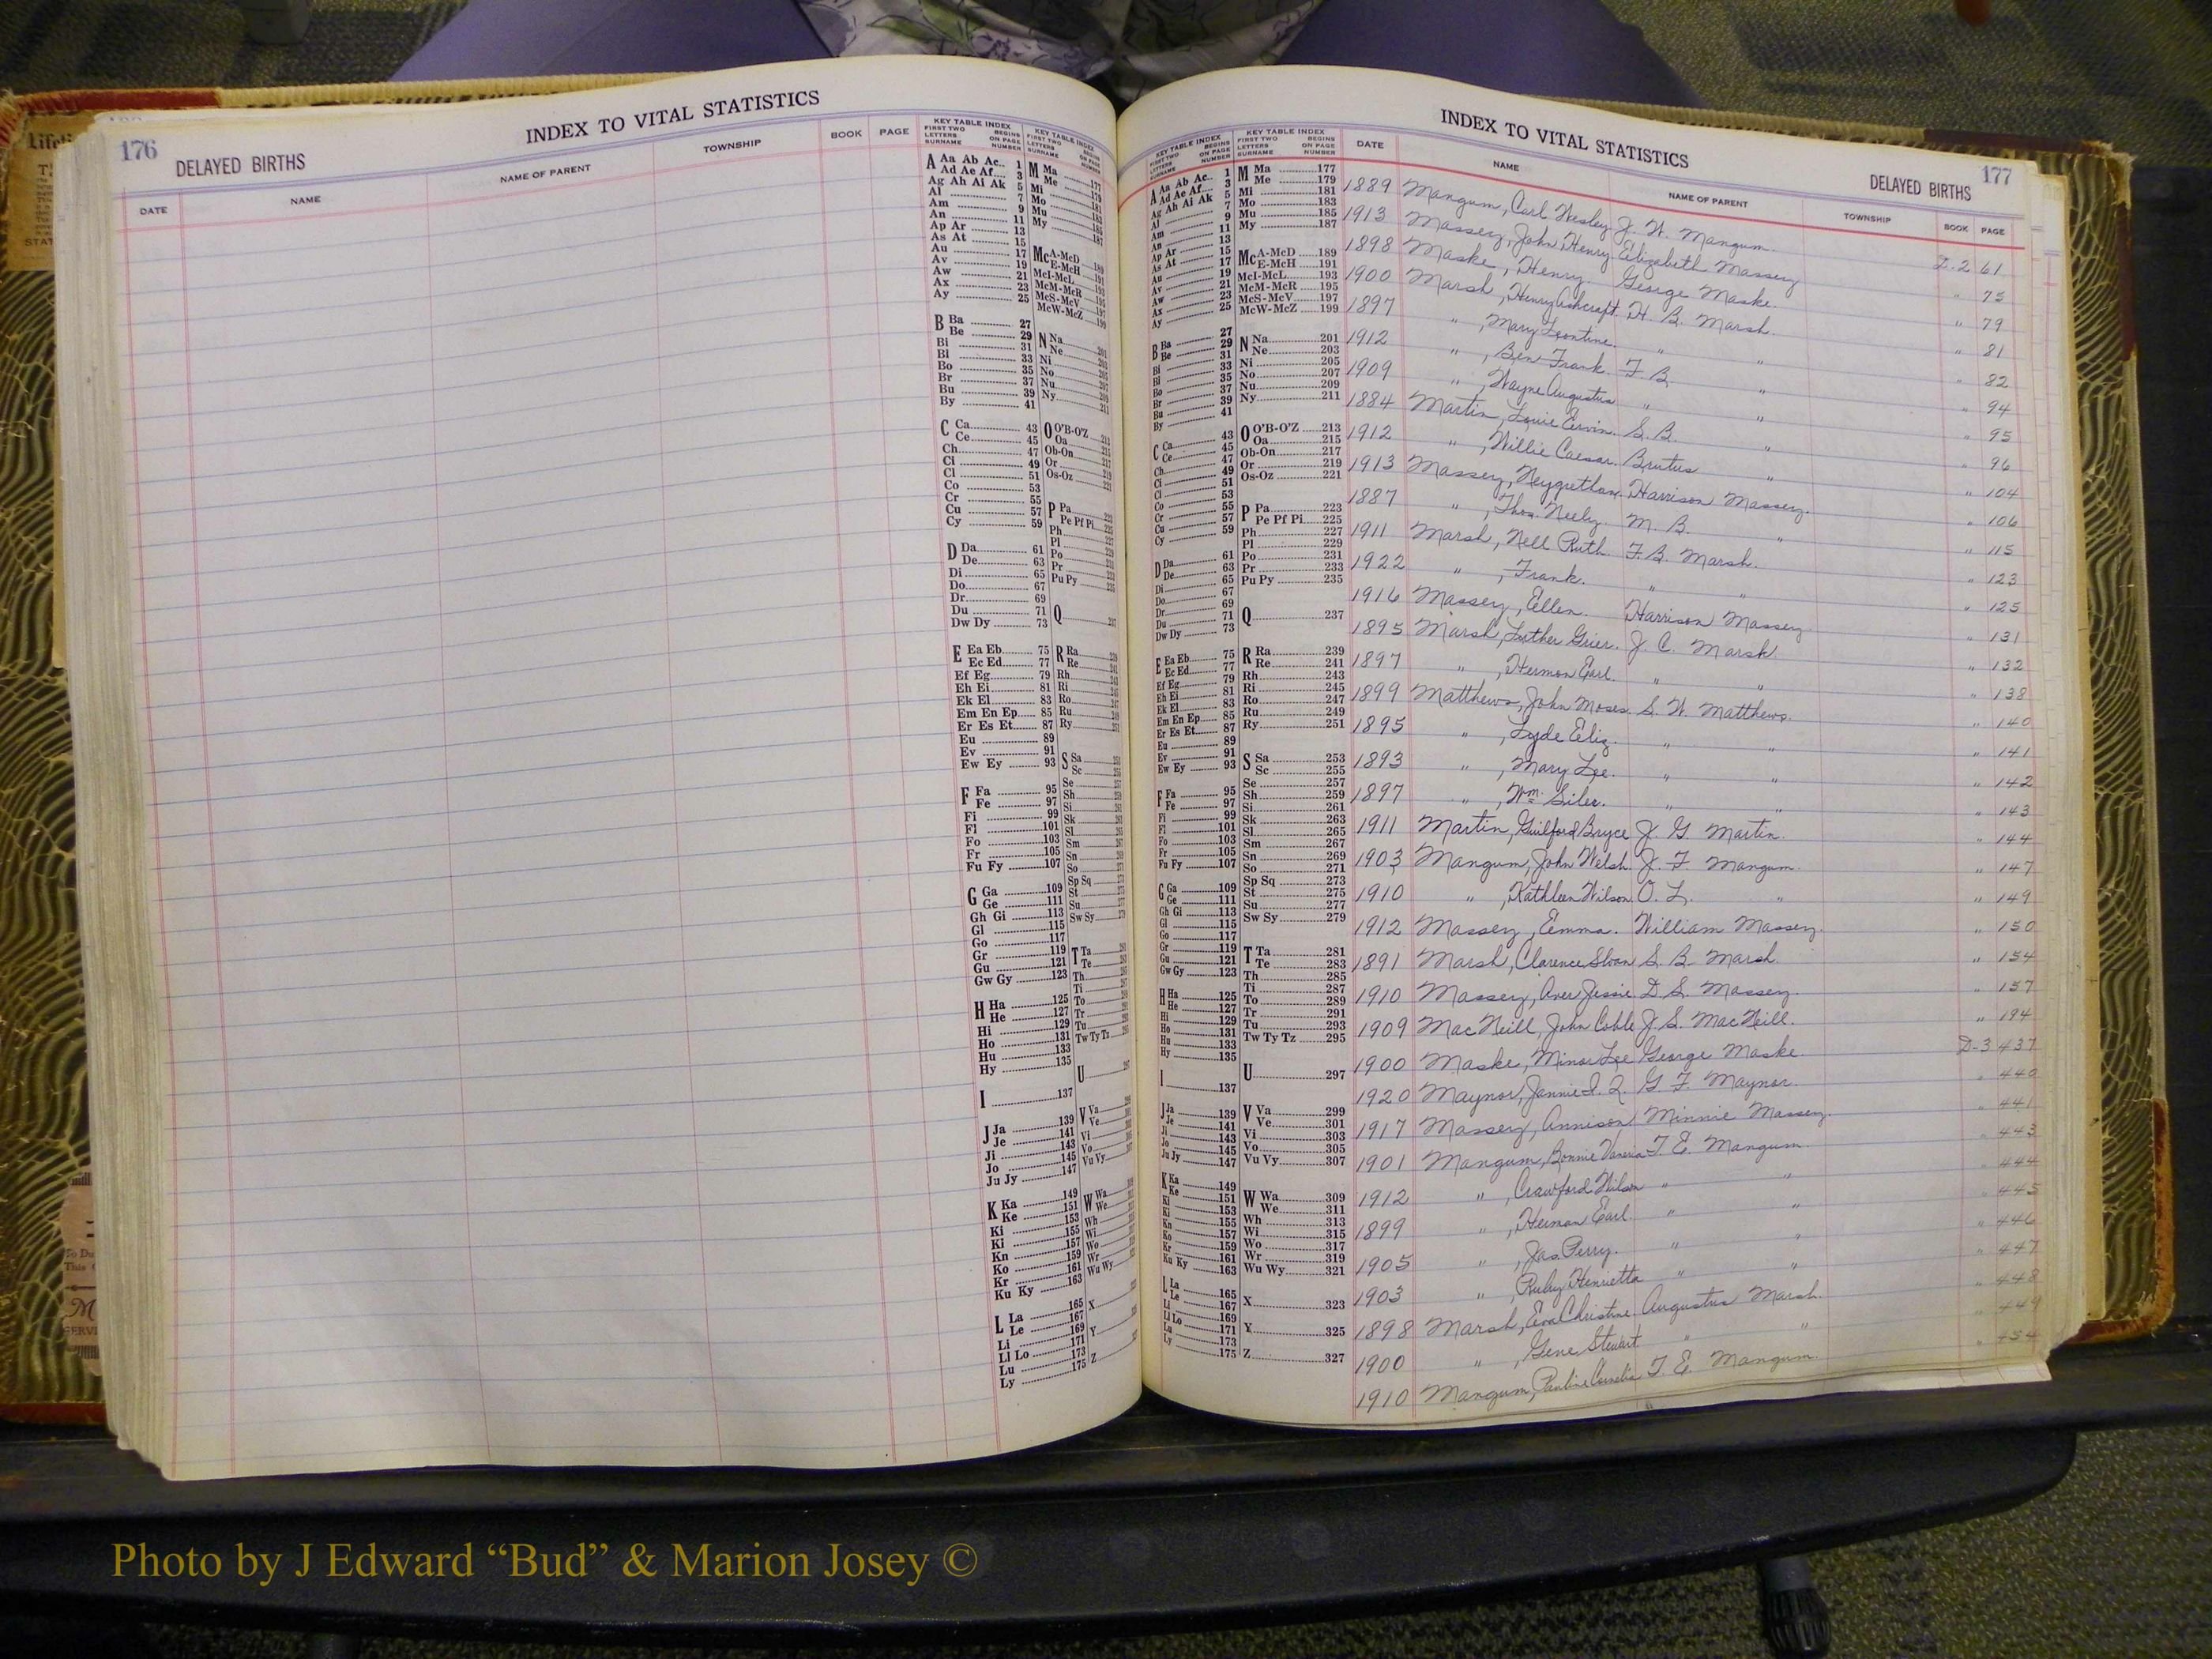 176
INDEX TO VITAL STATISTICS
DELAYED BIRTHS
DATE NAME NAME OF PARENT TOWNSHIP BOOK PAGE
KEY TABLE INDEX
FIRST TWO LETTERS SURNAME BEGINS ON PAGE NUMBER
A Aa Ab Ac 1
Ad Ae Af 3
Ag Ah Ai Ak 5
Al 7
Am 9
An 11
Ap Ar 13
As At 15
Au 17
Av 19
Aw 21
Ax 23
Ay 25
B Ba 27
Be 29
Bi 31
Bl 33
Bo 35
Br 37
Bu 39
By 41
C Ca 43
Ce 45
Ch 47
Ci 49
Cl 51
Co 53
Cr 55
Cu 57
Cy 59
D Da 61
De 63
Di 65
Do 67
Dr 69
Du 71
Dw Dy 73
E Ea Eb 75
Ec Ed 77
Ef Eg 79
Eh Ei 81
Ek El 83
Em En Ep 85
Er Es Et 87
Eu 89
Ev 91
Ew Ey 93
F Fa 95
Fe 97
Fi 99
Fl 101
Fo 103
Fr 105
Fu Fy 107
G Ga 109
Ge 111
Gh Gi 113
Gl 115
Go 117
Gr 119
Gu 121
Gw Gy 123
H Ha 125
He 127
Hi 129
Ho 131
Hu 133
Hy 135
I 137
J Ja 139
Je 141
Ji 143
Jo 145
Ju Jy 147
K Ka 149
Ke 151
Ki 153
Ki 155
Kn 157
Ko 159
Kr 161
Ku Ky 163
L La 165
Le 167
Li 169
Ll Lo 171
Lu 173
Ly 175
INDEX TO VITAL STATISTICS
177
DELAYED BIRTHS
KEY TABLE INDEX
FIRST TWO LETTERS SURNAME BEGINS ON PAGE NUMBER
M Ma 177
Me 179
Mi 181
Mo 183
Mu 185
My 187
Mc A-McD 189
E-McH 191
McI-McL 193
McM-McR 195
McS-McV 197
McW-McZ 199
N Na 201
Ne 203
Ni 205
No 207
Nu 209
Ny 211
O O'B-O'Z 213
Oa 215
Ob-On 217
Or 219
Os-Oz 221
P Pa 223
Pe Pf Pi 225
Ph 227
Pl 229
Po 231
Pr 233
Pu Py 235
Q 237
R Ra 239
Re 241
Rh 243
Ri 245
Ro 247
Ru 249
Ry 251
S Sa 253
Sc 255
Se 257
Sh 259
Si 261
Sk 263
Sl 265
Sm 267
Sn 269
So 271
Sp Sq 273
St 275
Su 277
Sw Sy 279
T Ta 281
Te 283
Th 285
Ti 287
To 289
Tr 291
Tu 293
Tw Ty Tz 295
U 297
V Va 299
Ve 301
Vi 303
Vo 305
Vu Vy 307
W Wa 309
We 311
Wh 313
Wi 315
Wo 317
Wr 319
Wu Wy 321
X 323
Y 325
Z 327
DATE NAME NAME OF PARENT TOWNSHIP BOOK PAGE
1889 Mangum, Carl Wesley J. W. Mangum D-2 61
1913 Massey, John Henry Elizabeth Massey " 75
1898 Maske, Henry George Maske " 79
1900 Marsh, Henry Ashcraft H. B. Marsh " 81
1897 " , Mary Leontine " " " 82
1912 " , Ben Frank F. B. " " 94
1909 " , Wayne Augustus " " " 95
1884 Martin, Louie Ervin S. B. " " 96
1912 " , Willie Caesar Brutus " " 104
1913 Massey, Harrison Massey " 106
1887 " , Thos. Neely M. B. " " 115
1911 Marsh, Nell Ruth F. B. Marsh " 123
1922 " , Frank " " " 125
1916 Massey, Ellen Harrison Massey " 131
1895 Marsh, Luther Grier J. C. Marsh " 132
1897 " , Hermon Earl " " " 138
1899 Matthews, John Moses S. W. Matthews " 140
1895 " , Lyde Eliz. " " " 141
1893 " , Mary Lee " " " 142
1897 " , Wm. Siler " " " 143
1911 Martin, Guilford Bryce J. G. Martin " 144
1903 Mangum, John Welsh J. F. Mangum " 147
1910 " , Kathleen Wilson O. L. " " 149
1912 Massey, Emma William Massey " 150
1891 Marsh, Clarence Sloan S. B. Marsh " 154
1910 Massey, Aver Jessie D. S. Massey " 157
1909 MacNeill, John Coble J. S. MacNeill " 194
1900 Maske, Minor Lee George Maske D-3 437
1920 Maynor, Jannie I. Q. G. F. Maynor " 440
1917 Massey, Annison Minnie Massey " 441
1901 Mangum, Bonnie T. E. Mangum " 443
1912 " , Crawford Wilson " " " 444
1899 " , Herman Earl " " " 445
1905 " , Jas. Perry " " " 446
1903 " , Ruby Henrietta " " " 447
1898 Marsh, Eva Christine Augustus Marsh " 448
1900 " , Gene Stewart " " " 449
1910 Mangum, Pauline Cornelia T. E. Mangum " 454
Photo by J Edward “Bud” & Marion Josey ©